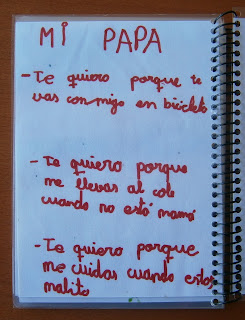 MI PAPA
- Te quiero porque te
vas conmigo en bicicleta
- Te quiero porque
me llevas al cole
cuando no está mamá
- Te quiero porque
me cuidas cuando estoy
malito